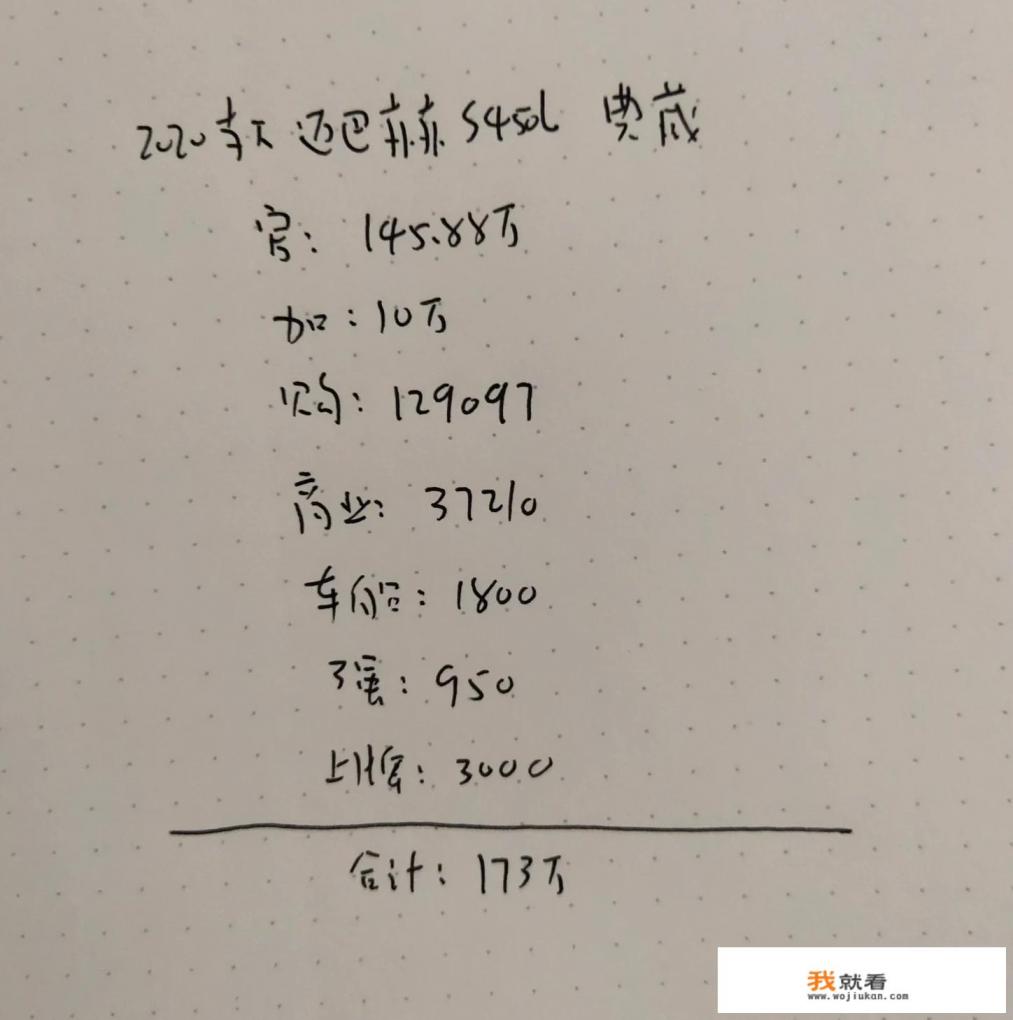 2020款 迈巴赫 S450L 典藏
官: 145.88万
加: 10万
购: 129097
商业: 37210
车船: 1800
强: 950
上牌: 3000
合计: 173万
我就看
www.wojiukan.com